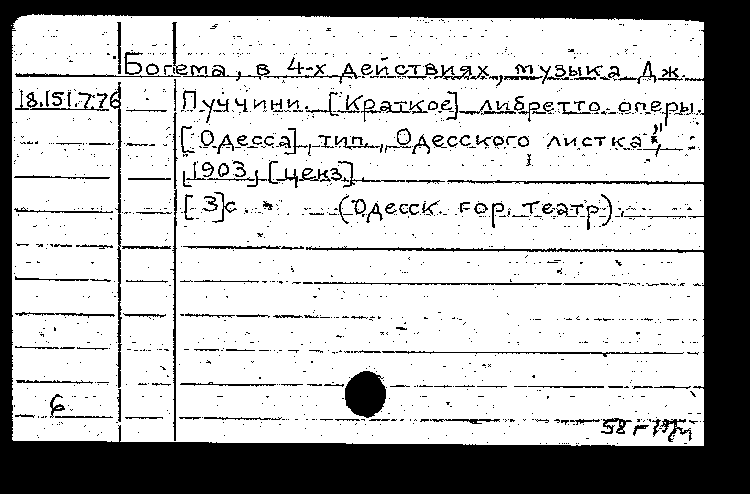 Богема, в 4-х действиях, музыка Дж.
18.151.7.76 Пуччини. [Краткое] либретто оперы.
[Одесса], тип. „Одесского листка",
[1903] [ценз].
[3]с. (Одесск. гор. театр).
6
58